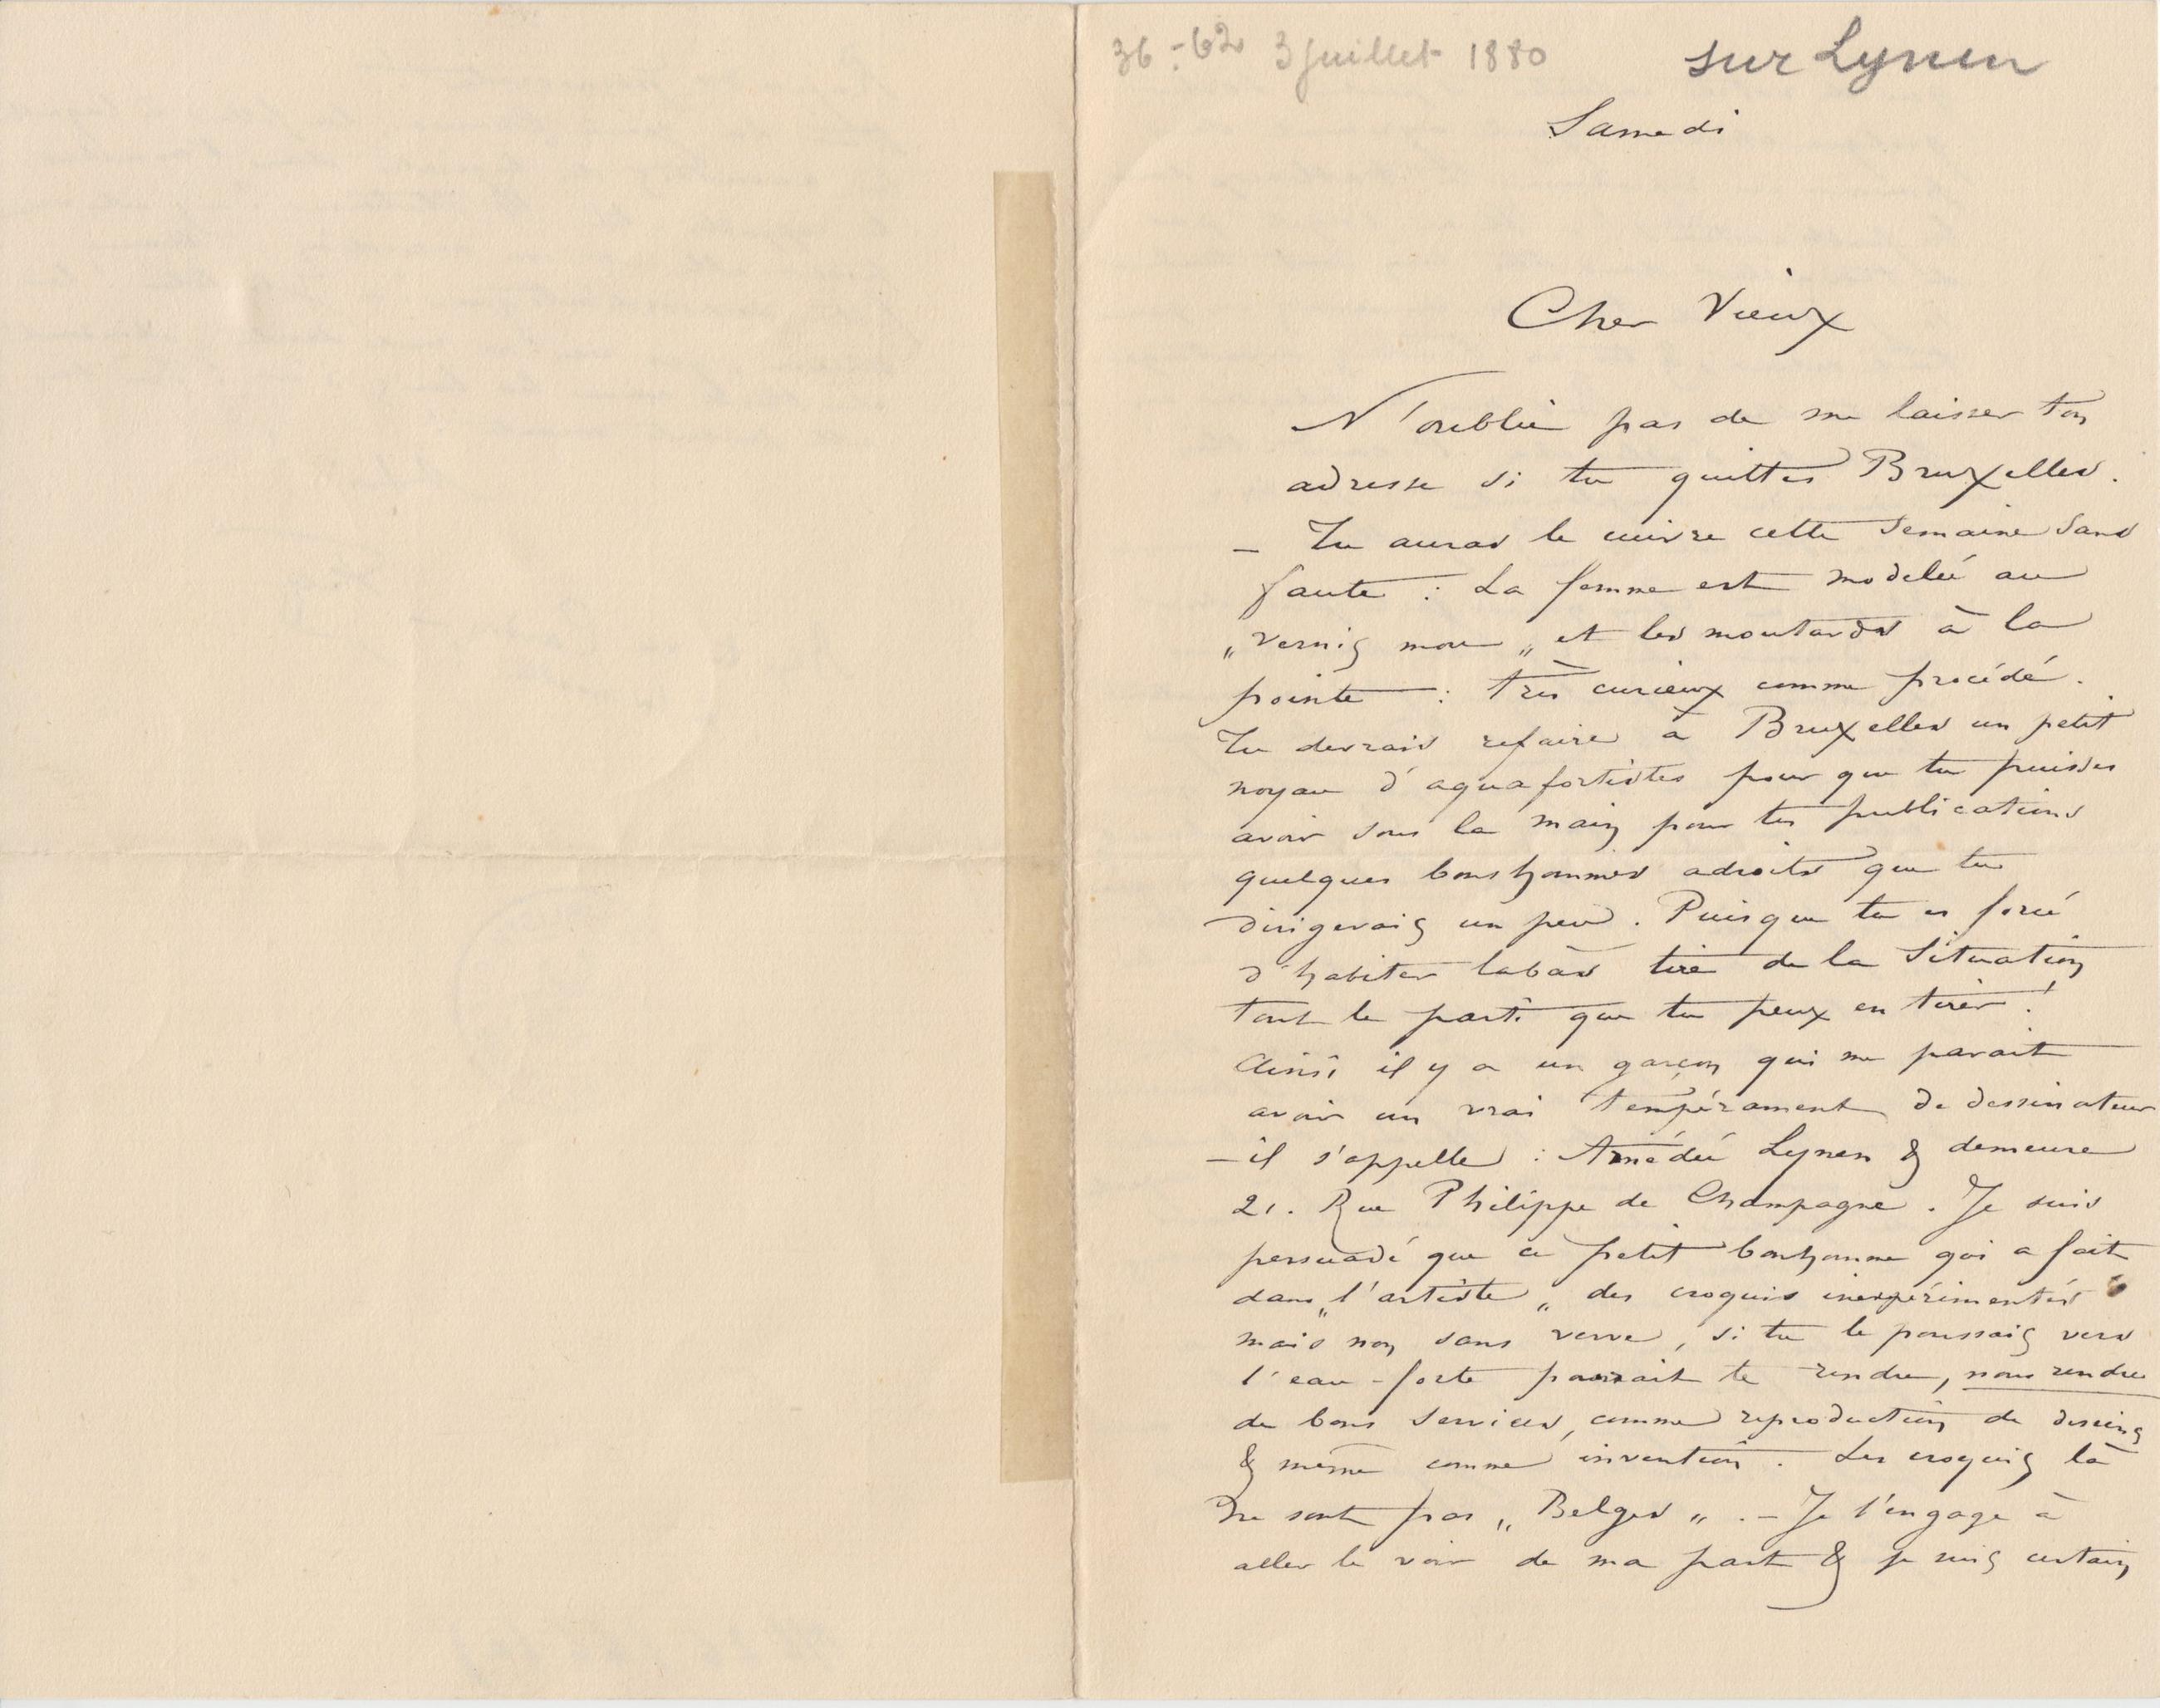 36-62 3 Juillet 1880 sur Lynen
Samedi
Cher Vieux
N'oublie pas de me laisser ton
adresse si tu quittes Bruxelles.
– Tu auras le cuivre cette semaine sans
faute : La femme est modelée au
„vernis mou„ et les moutards à la
pointe – : très curieux comme procédé.
Tu devrais refaire à Bruxelles un petit
noyau d'aquafortistes pour que tu puisses
avoir sous la main pour tes publications
quelques bonshommes adroits que tu
dirigerais un peu. Puisque tu es forcé
d'habiter labàs tire de la situation
tout le parti que tu peux en tirer !
Ainsi il y a un garçon qui me parait
avoir un vrai tempérament de dessinateur
– il s'appelle : Amédée Lynen & demeure
21. Rue Philippe de Champagne. Je suis
persuadé que ce petit bonhomme qui a fait
dans „l'artiste„ des croquis inexpérimentés
mais non sans verve, si tu le poussais vers
l'eau-forte pourrait te rendre, nous rendre
de bons services, comme reproduction de dessins
& même comme invention. Les croquis là
ne sont pas „Belges„. – Je t'engage à
aller le voir de ma part & je suis certain